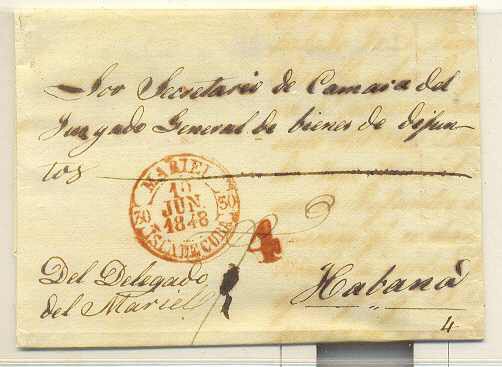 Sor Secretario de Camara del
Juzgado General de bienes de difun-
tos
MARIEL
10
JUN.
1848
30
30
ISLA DE CUBA
Del Delegado
del Mariel
Habana
4